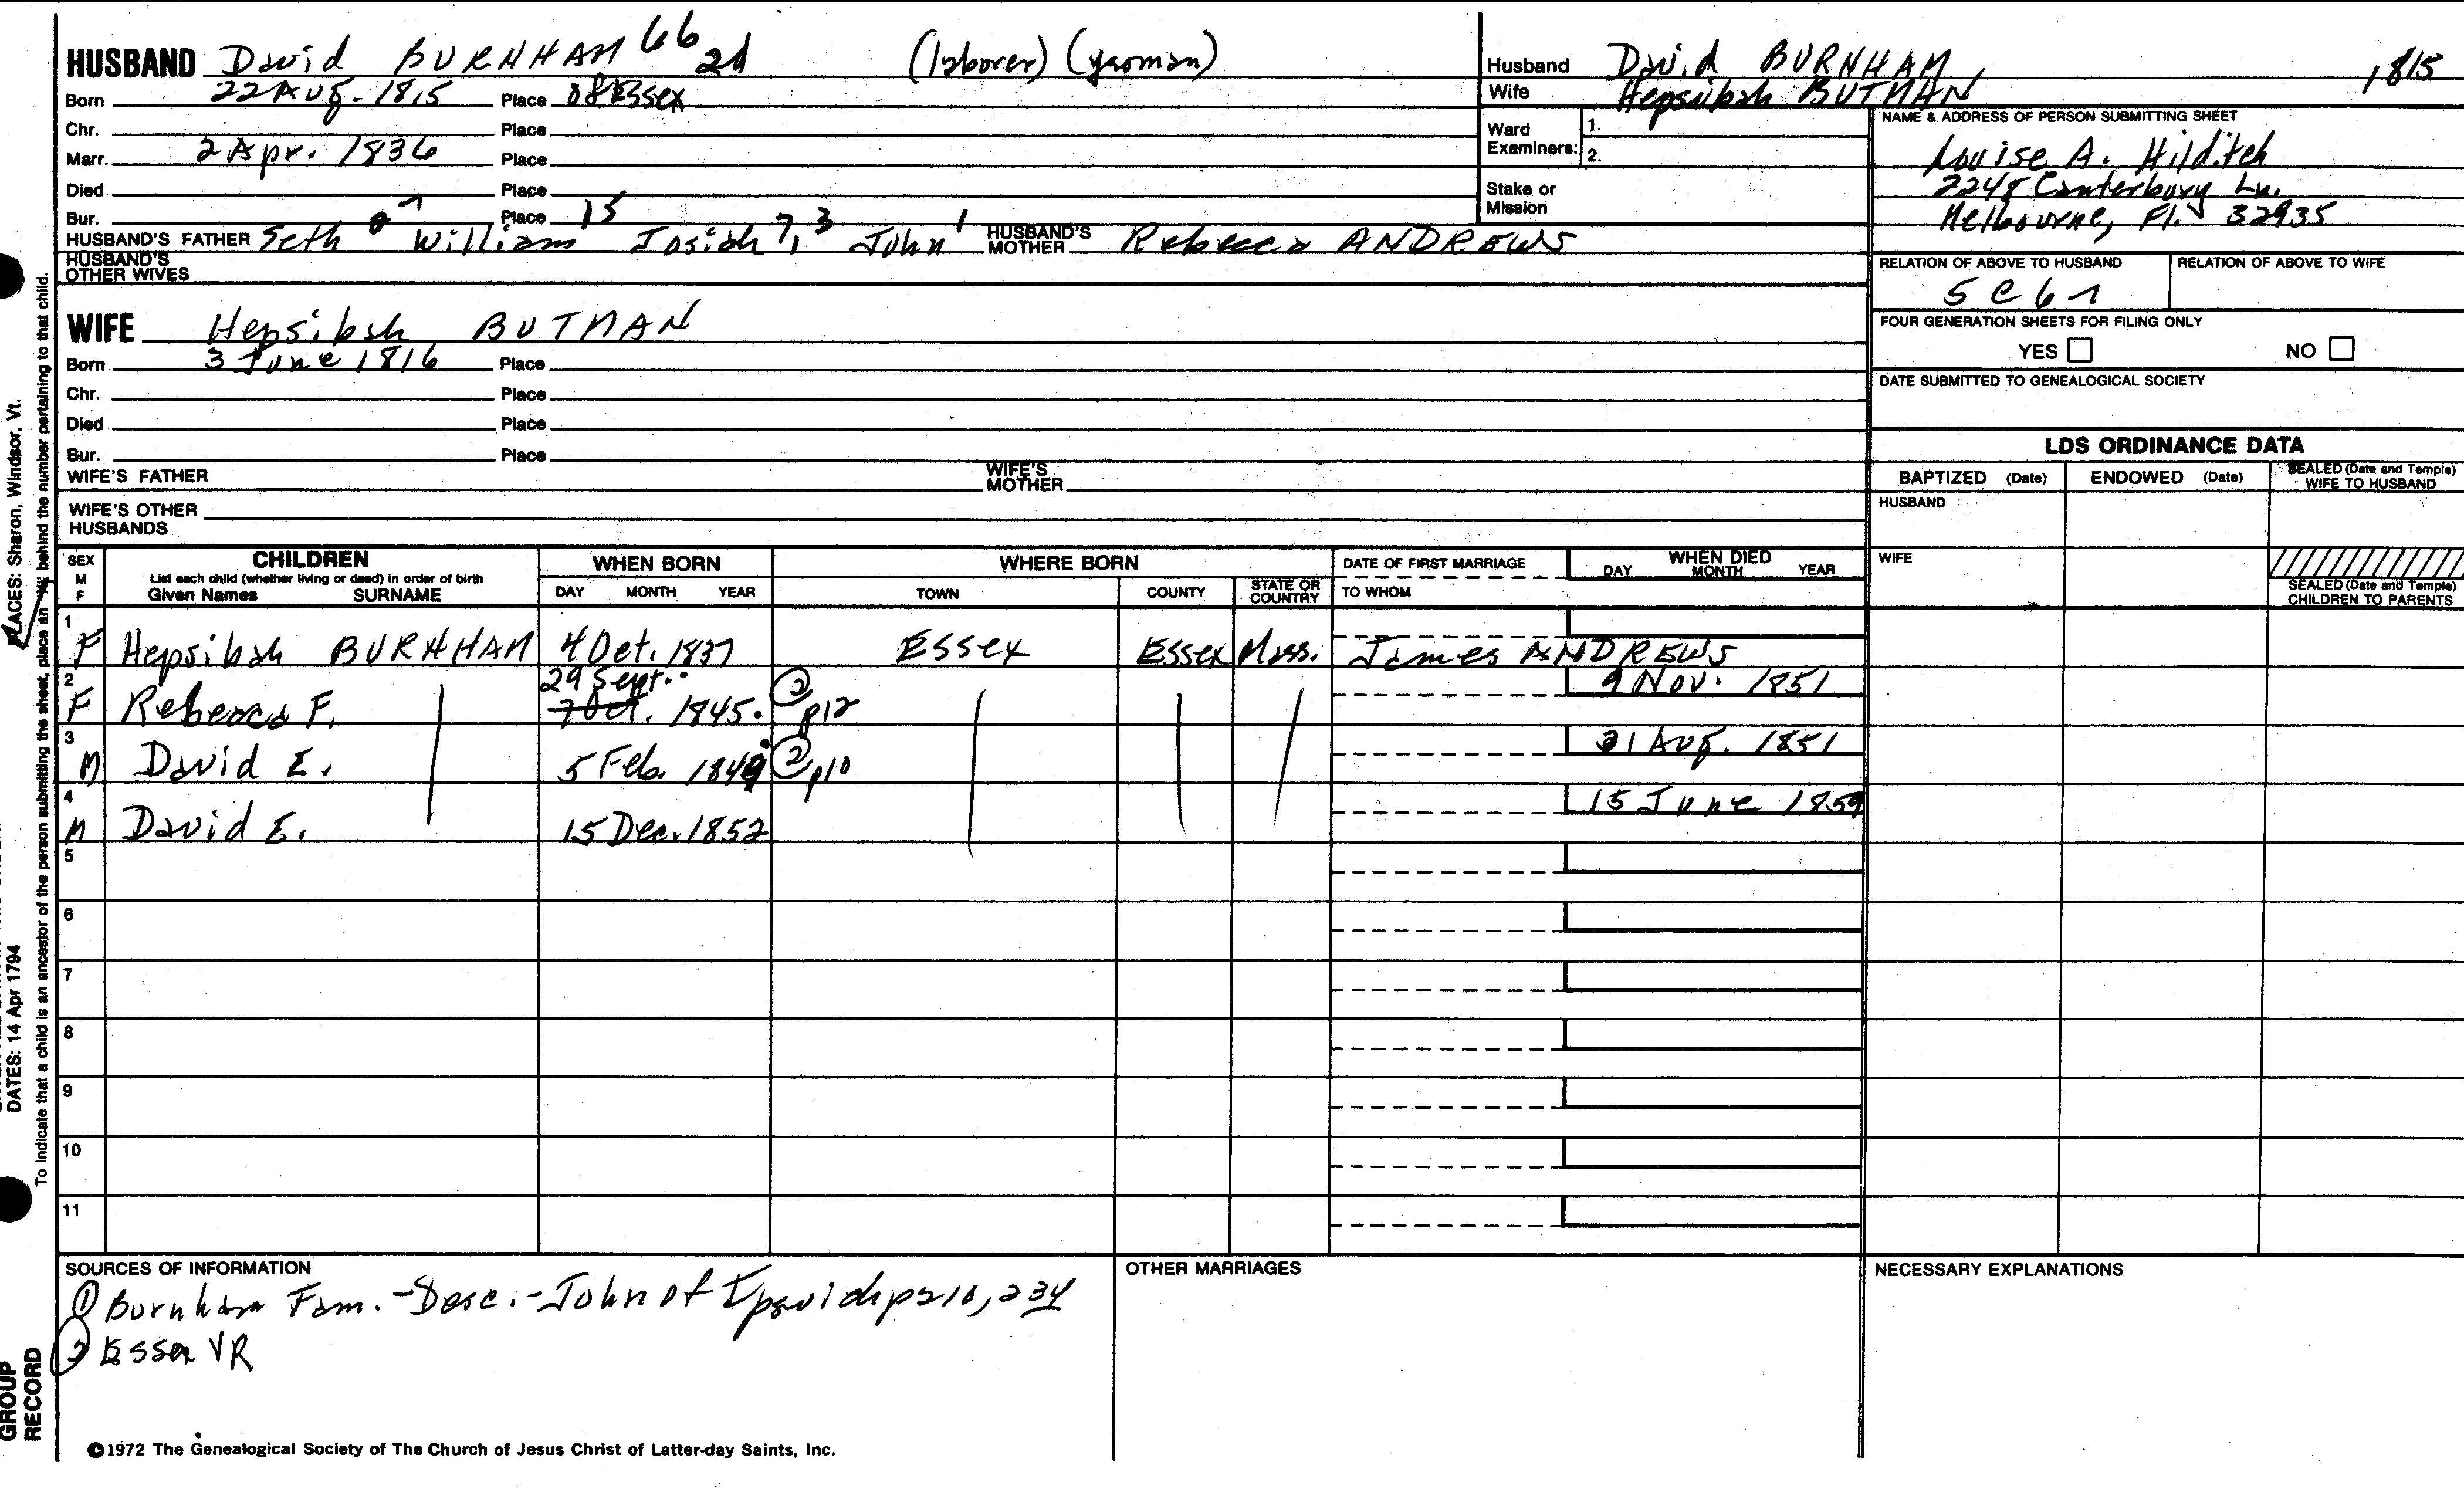 HUSBAND David BURNHAM 66 2d (laborer) (yeoman)
Born 22 Aug. 1815 Place Essex
Chr. Place
Marr. 2 Apr. 1836 Place
Died Place
Bur. Place 15
HUSBAND'S FATHER Seth William Josiah John 1 HUSBAND'S MOTHER Rebecca ANDREWS
HUSBAND'S OTHER WIVES
WIFE Hepsibah BUTMAN
Born 3 June 1816 Place
Chr. Place
Died Place
Bur. Place
WIFE'S FATHER WIFE'S MOTHER
WIFE'S OTHER HUSBANDS
Husband David BURNHAM 1815
Wife Hepsibah BUTMAN
Ward Examiners: 1.
2.
Stake or Mission
NAME & ADDRESS OF PERSON SUBMITTING SHEET
Louise A. Hilditch
2248 Canterbury Ln.
Melbourne, Fl. 32935
RELATION OF ABOVE TO HUSBAND RELATION OF ABOVE TO WIFE
5 C 6 r
FOUR GENERATION SHEETS FOR FILING ONLY
YES NO
DATE SUBMITTED TO GENEALOGICAL SOCIETY
LDS ORDINANCE DATA
BAPTIZED (Date) ENDOWED (Date) SEALED (Date and Temple) WIFE TO HUSBAND
HUSBAND
WIFE
SEALED (Date and Temple) CHILDREN TO PARENTS
SEX M F CHILDREN WHEN BORN WHERE BORN DATE OF FIRST MARRIAGE WHEN DIED
List each child (whether living or dead) in order of birth
Given Names SURNAME DAY MONTH YEAR TOWN COUNTY STATE OR COUNTRY TO WHOM DAY MONTH YEAR
1 F Hepsibah BURNHAM 4 Oct. 1837 Essex Essex Mass. James ANDREWS
2 F Rebecca F. 29 Sept. 7 Oct. 1845. 2 p12 9 Nov. 1851
3 M David E. 5 Feb. 1849 2 p10 21 Aug. 1851
4 M David E. 15 Dec. 1852 15 June 1859
5
6
7
8
9
10
11
SOURCES OF INFORMATION
1 Burnham Fam. - Desc. - John of Ipswich p 210, 234
2 Essex VR
OTHER MARRIAGES
NECESSARY EXPLANATIONS
©1972 The Genealogical Society of The Church of Jesus Christ of Latter-day Saints, Inc.
PLACES: Sharon, Windsor, Vt.
DATES: 14 Apr 1794
To indicate that a child is an ancestor of the person submitting the sheet, place an "X" behind the number pertaining to that child.
GROUP
RECORD